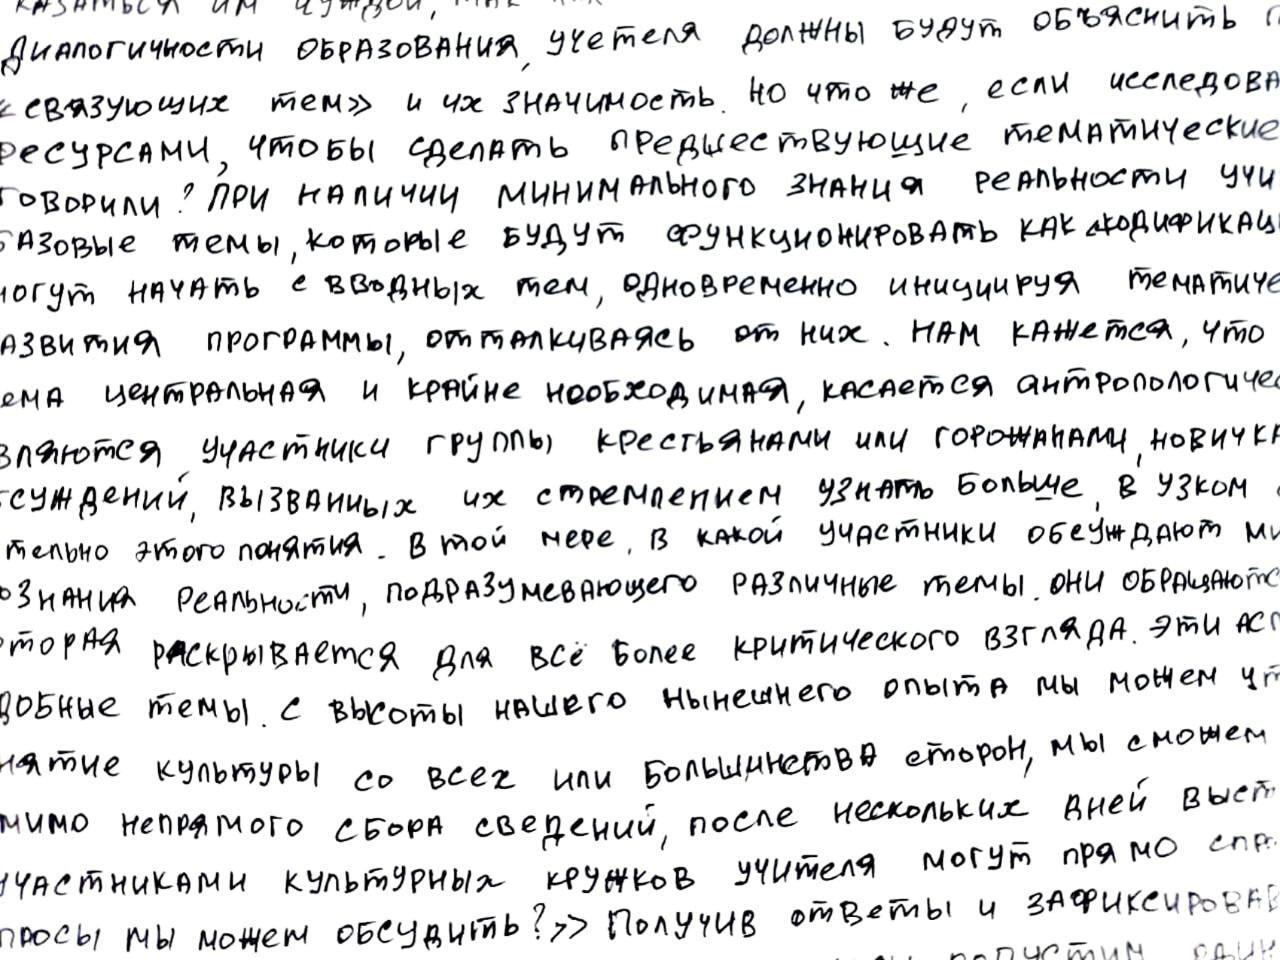 казаться им чуждой,
диалогичности образования, учетеля должны будут объяснить
«связующих тем» и их значимость. Но что же, если исследова
ресурсами, чтобы сделать предшествующие тематические
говорили? При наличии минимального знания реальности учи
базовые темы, которые будут функционировать как кодификац
могут начать с вводных тем, одновременно инициируя тематиче
азвития программы, отталкиваясь от них. Нам кажется, что
ема центральная и крайне необходимая, касается антропологичес
вляются участники группы крестьянами или горожанами, новичка
бсуждений, вызванных их стремлением узнать больше, в узком
тельно этого понятия. В той мере, в какой участники обсуждают ми
ознания реальности, подразумевающего различные темы. они обращаются
оторая раскрывается для всё более критического взгляда. Эти асп
добные темы. С высоты нашего нынешнего опыта мы можем ут
нятие культуры со всех или большинства сторон, мы сможем
мимо непрямого сбора сведений, после нескольких дней выст
участниками культурных кружков учителя могут прямо спр
просы мы можем обсудить?» Получив ответы и зафиксировав
допустим, один